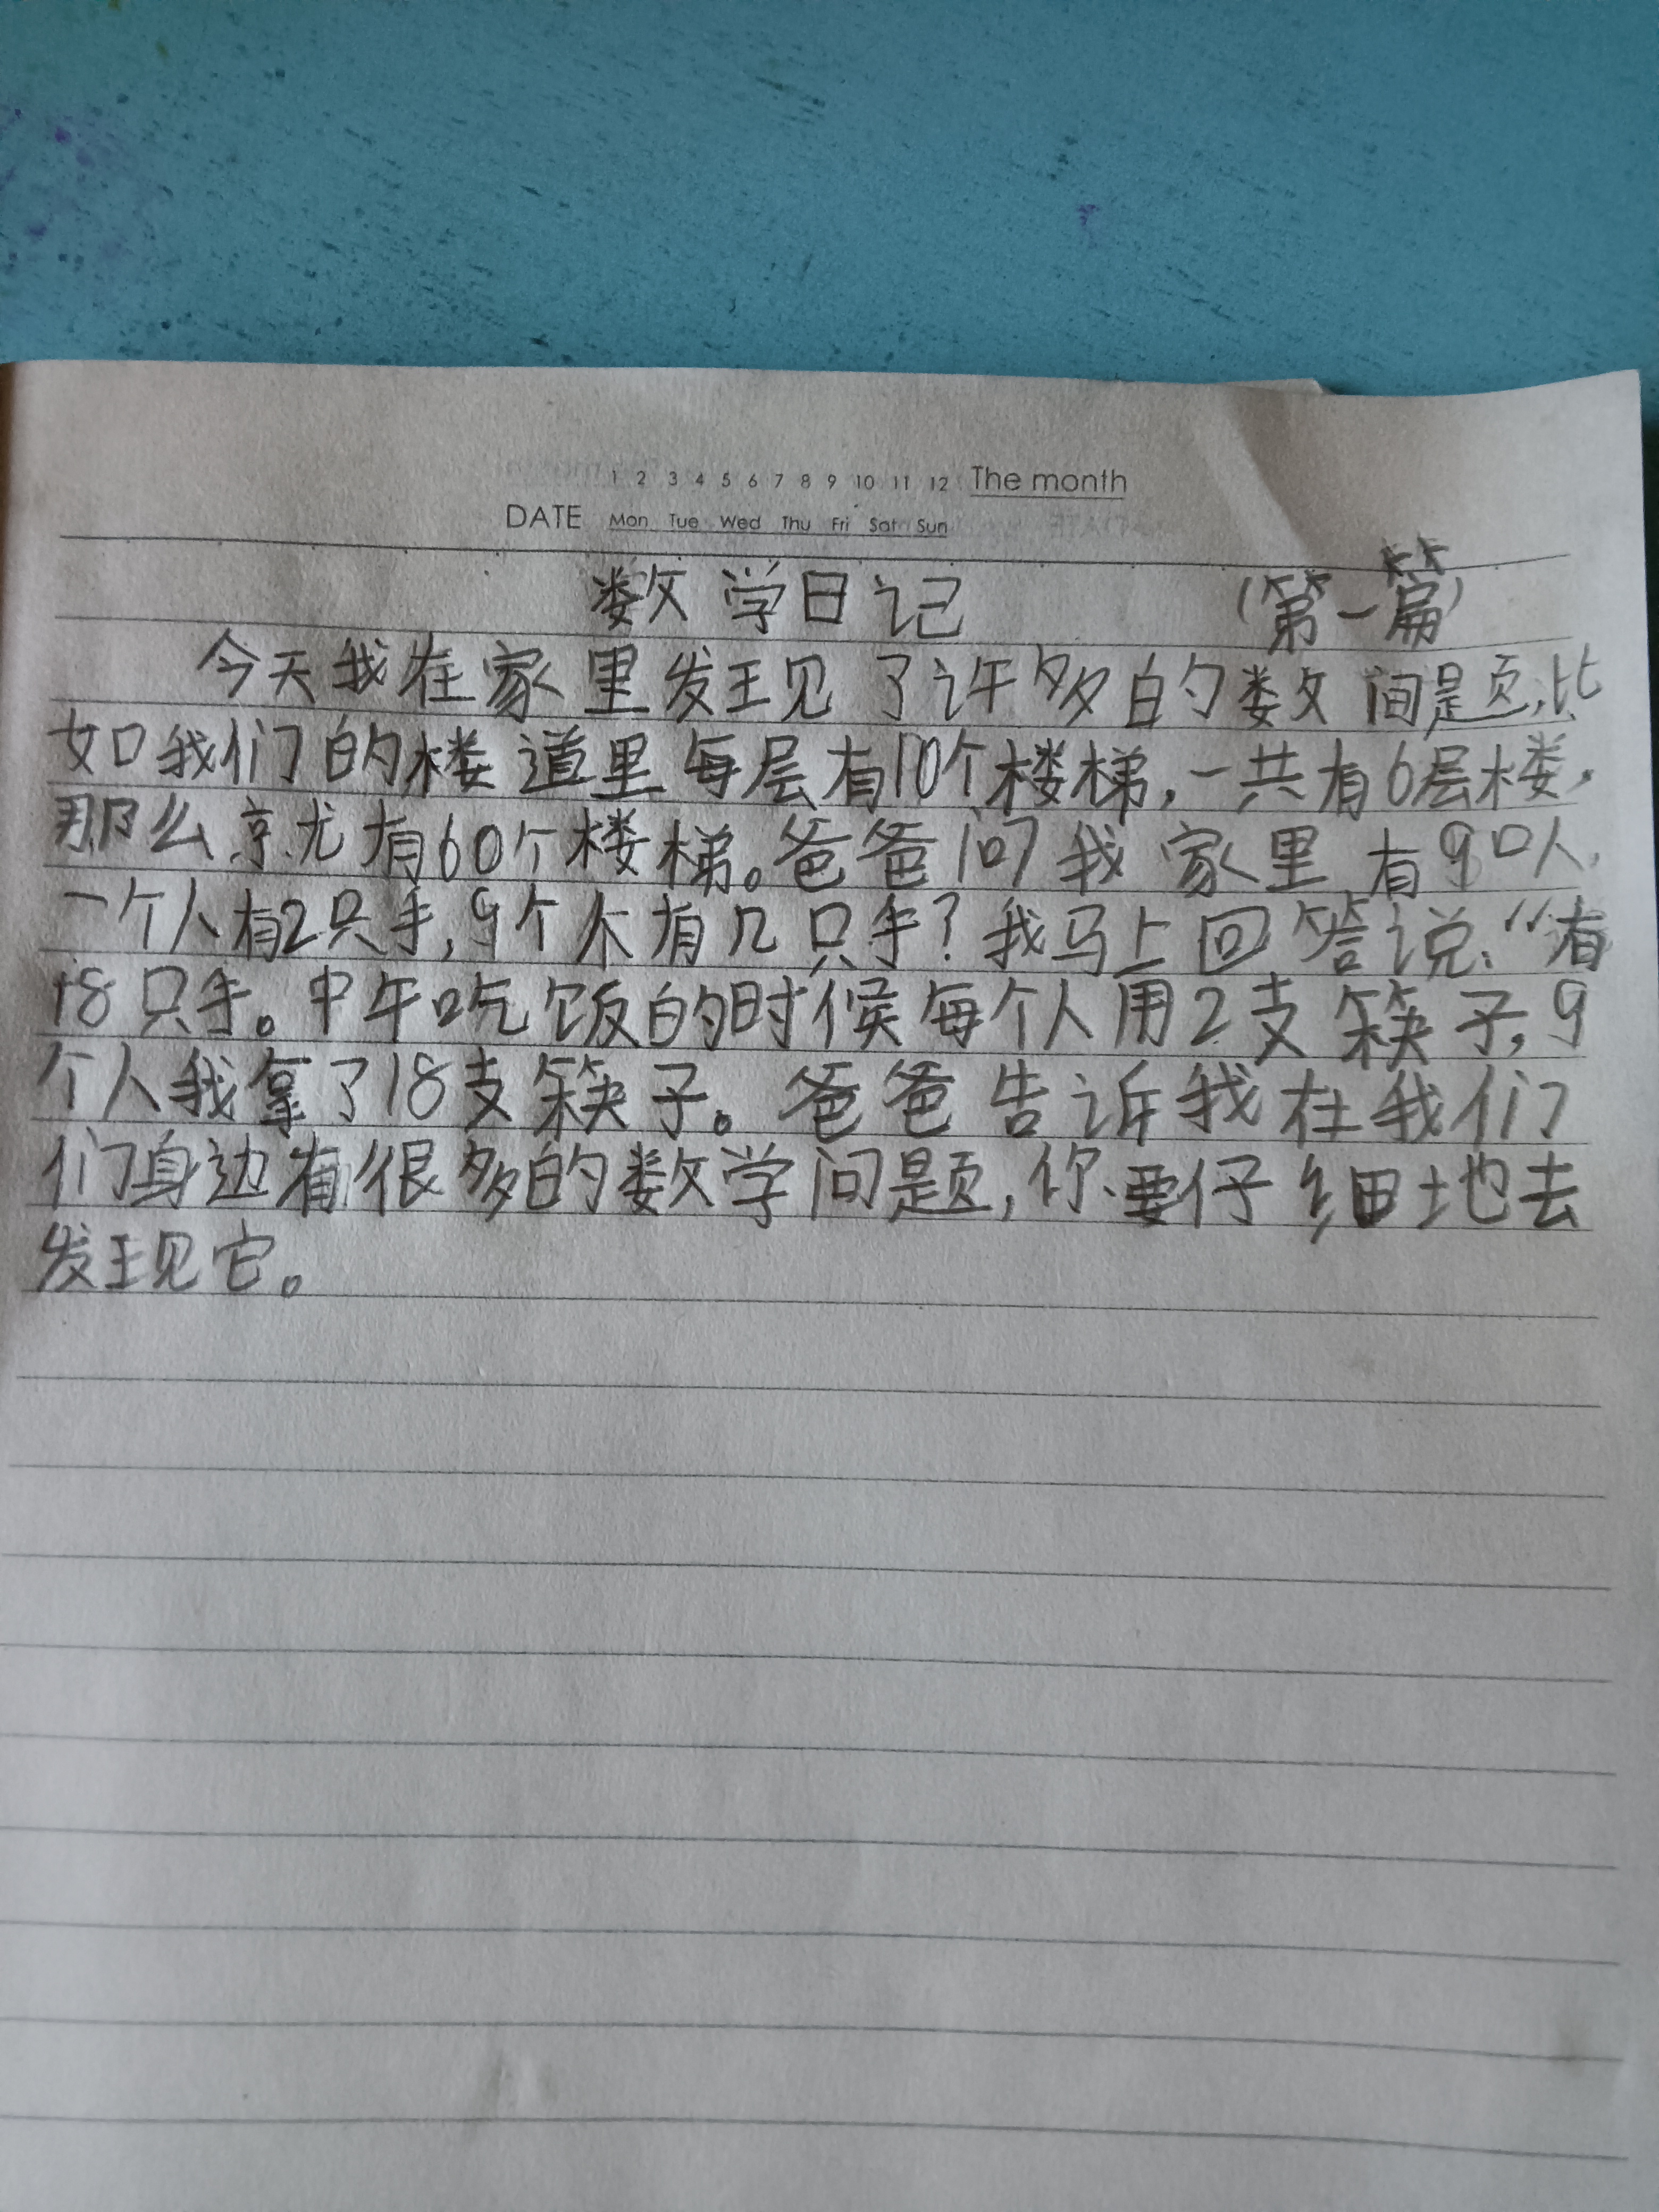 1 2 3 4 5 6 7 8 9 10 11 12 The month
DATE Mon Tue Wed Thu Fri Sat Sun
数学日记 (第一篇)
今天我在家里发现了许多的数间题,比
如我们的楼道里每层有10个楼梯,一共有6层楼,
那么就有60个楼梯。爸爸问我家里有9口人,
一个人有2只手,9个人有几只手?我马上回答说:“有
18只手。中午吃饭的时候每个人用2支筷子,9
个人我拿了18支筷子。爸爸告诉我在我们
们身边有很多的数学问题,你要仔细地去
发现它。